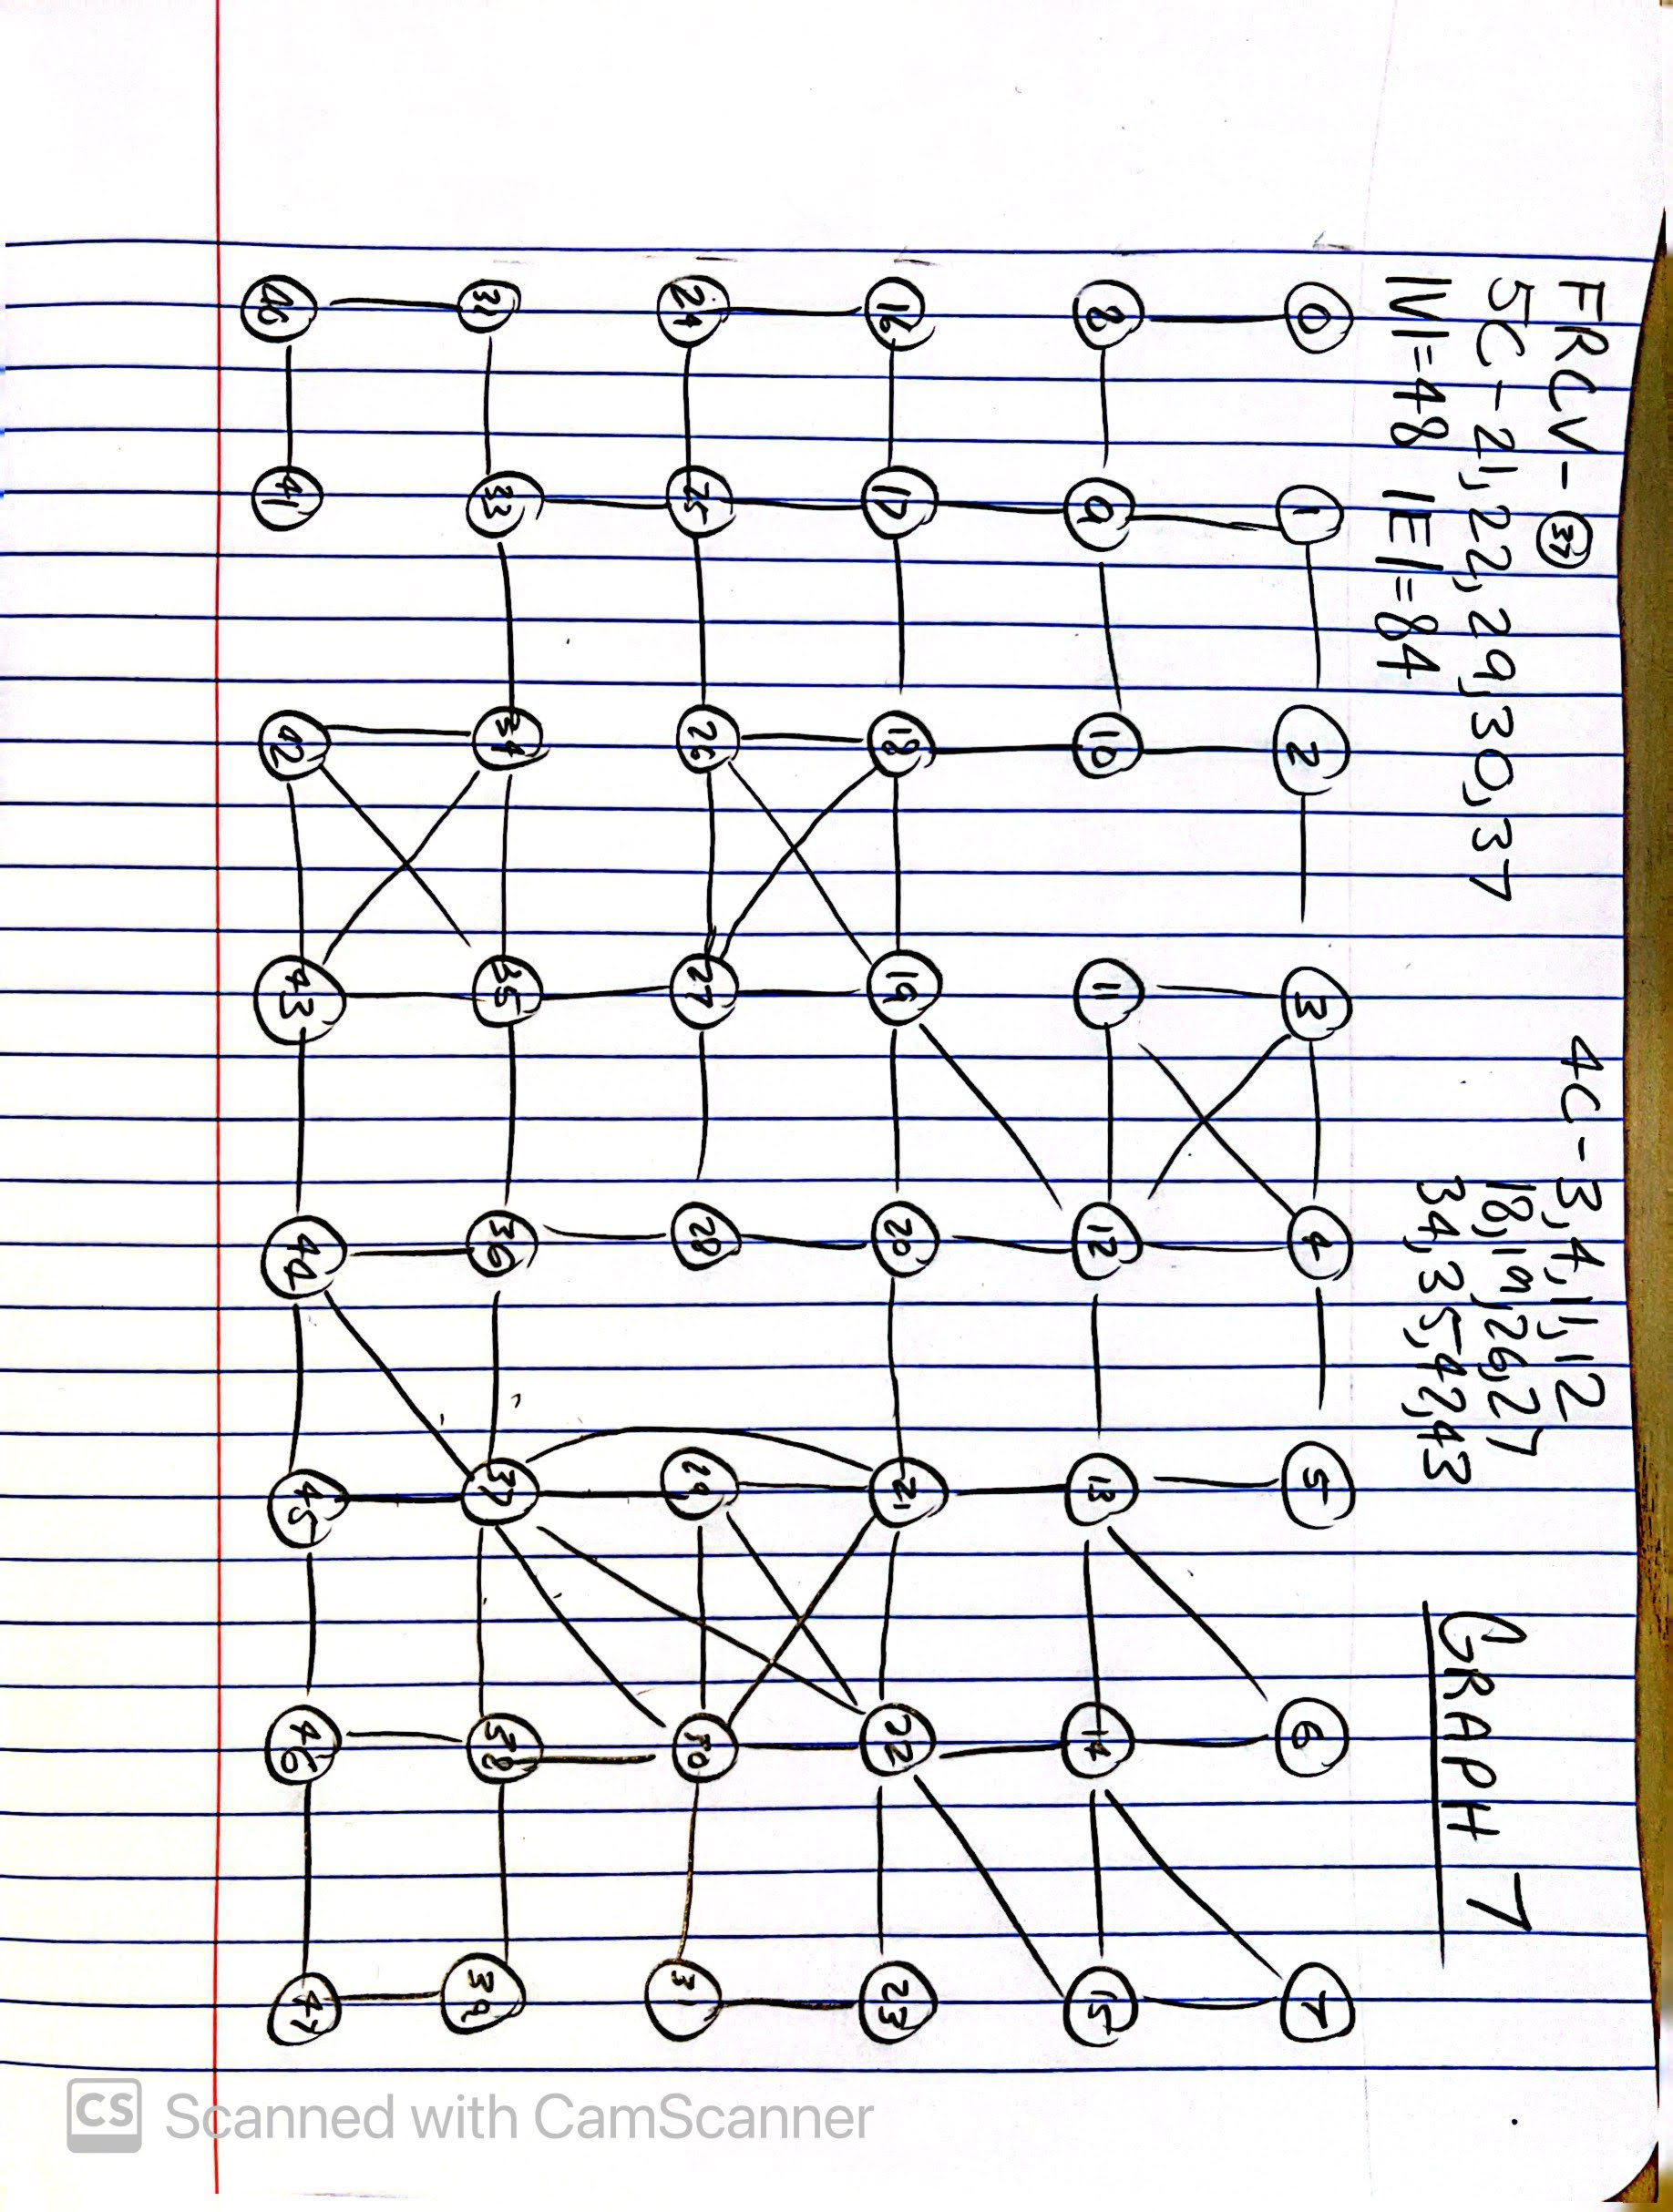 FRCV- 37
5C-21,22,29,30,37
|V|=48 |E|=84
4C-3,4,11,12
18,19,26,27
34,35,42,43
GRAPH 7
0 1 2 3 4 5 6 7
8 9 10 11 12 13 14 15
16 17 18 19 20 21 22 23
24 25 26 27 28 29 30 31
32 33 34 35 36 37 38 39
40 41 42 43 44 45 46 47
CS Scanned with CamScanner